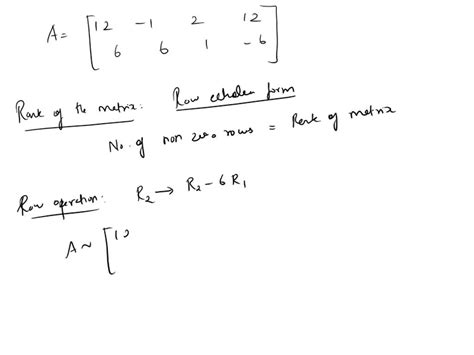 A = [12 -1 2 12
6 6 1 -6]
Rank of the matrix: Row echelon form
No. of non zero rows = Rank of matrix
Row operation: R₂ → R₂ - 6 R₁
A ~ [12